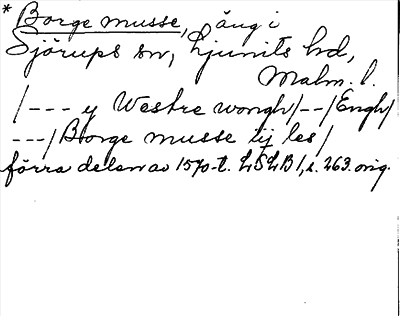 * Borge musse, äng i
Sjörups sn, Ljunits hd,
Malm. l.
/--- y Westre wongh/--/Engh/
---/Borge musse ij les/
förra delen av 1570-t. LSLB 1, s. 263. orig.